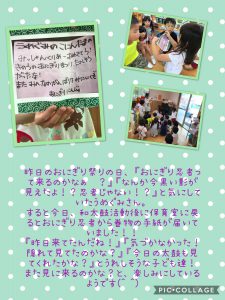 昨日のおにぎり祭りの日、『おにぎり忍者っ
て来るのかなぁ　？』『なんか今黒い影が
見えたよ！？忍者じゃない！？』と気にして
いたうめぐみさん。
すると今日、和太鼓活動後に保育室に戻
るとおにぎり忍者から巻物の手紙が届いて
いました！！
『昨日来てたんだね！』『気づかなかった！
隠れて見てたのかな？』『今日の太鼓も見
てくれたかな？』とうれしそうな子ども達！
また見に来るのかな？と、楽しみにしている
ようです(^ ^)
PIC•COLLAGE